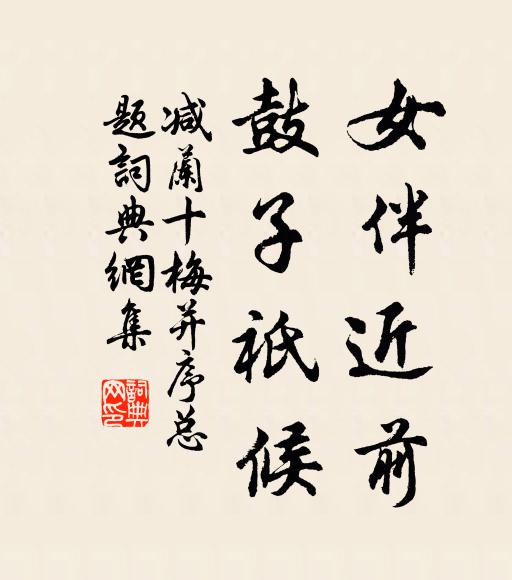 女伴近前
鼓子祇候
减蘭十梅并序总
題詞典網集
詞典
网印